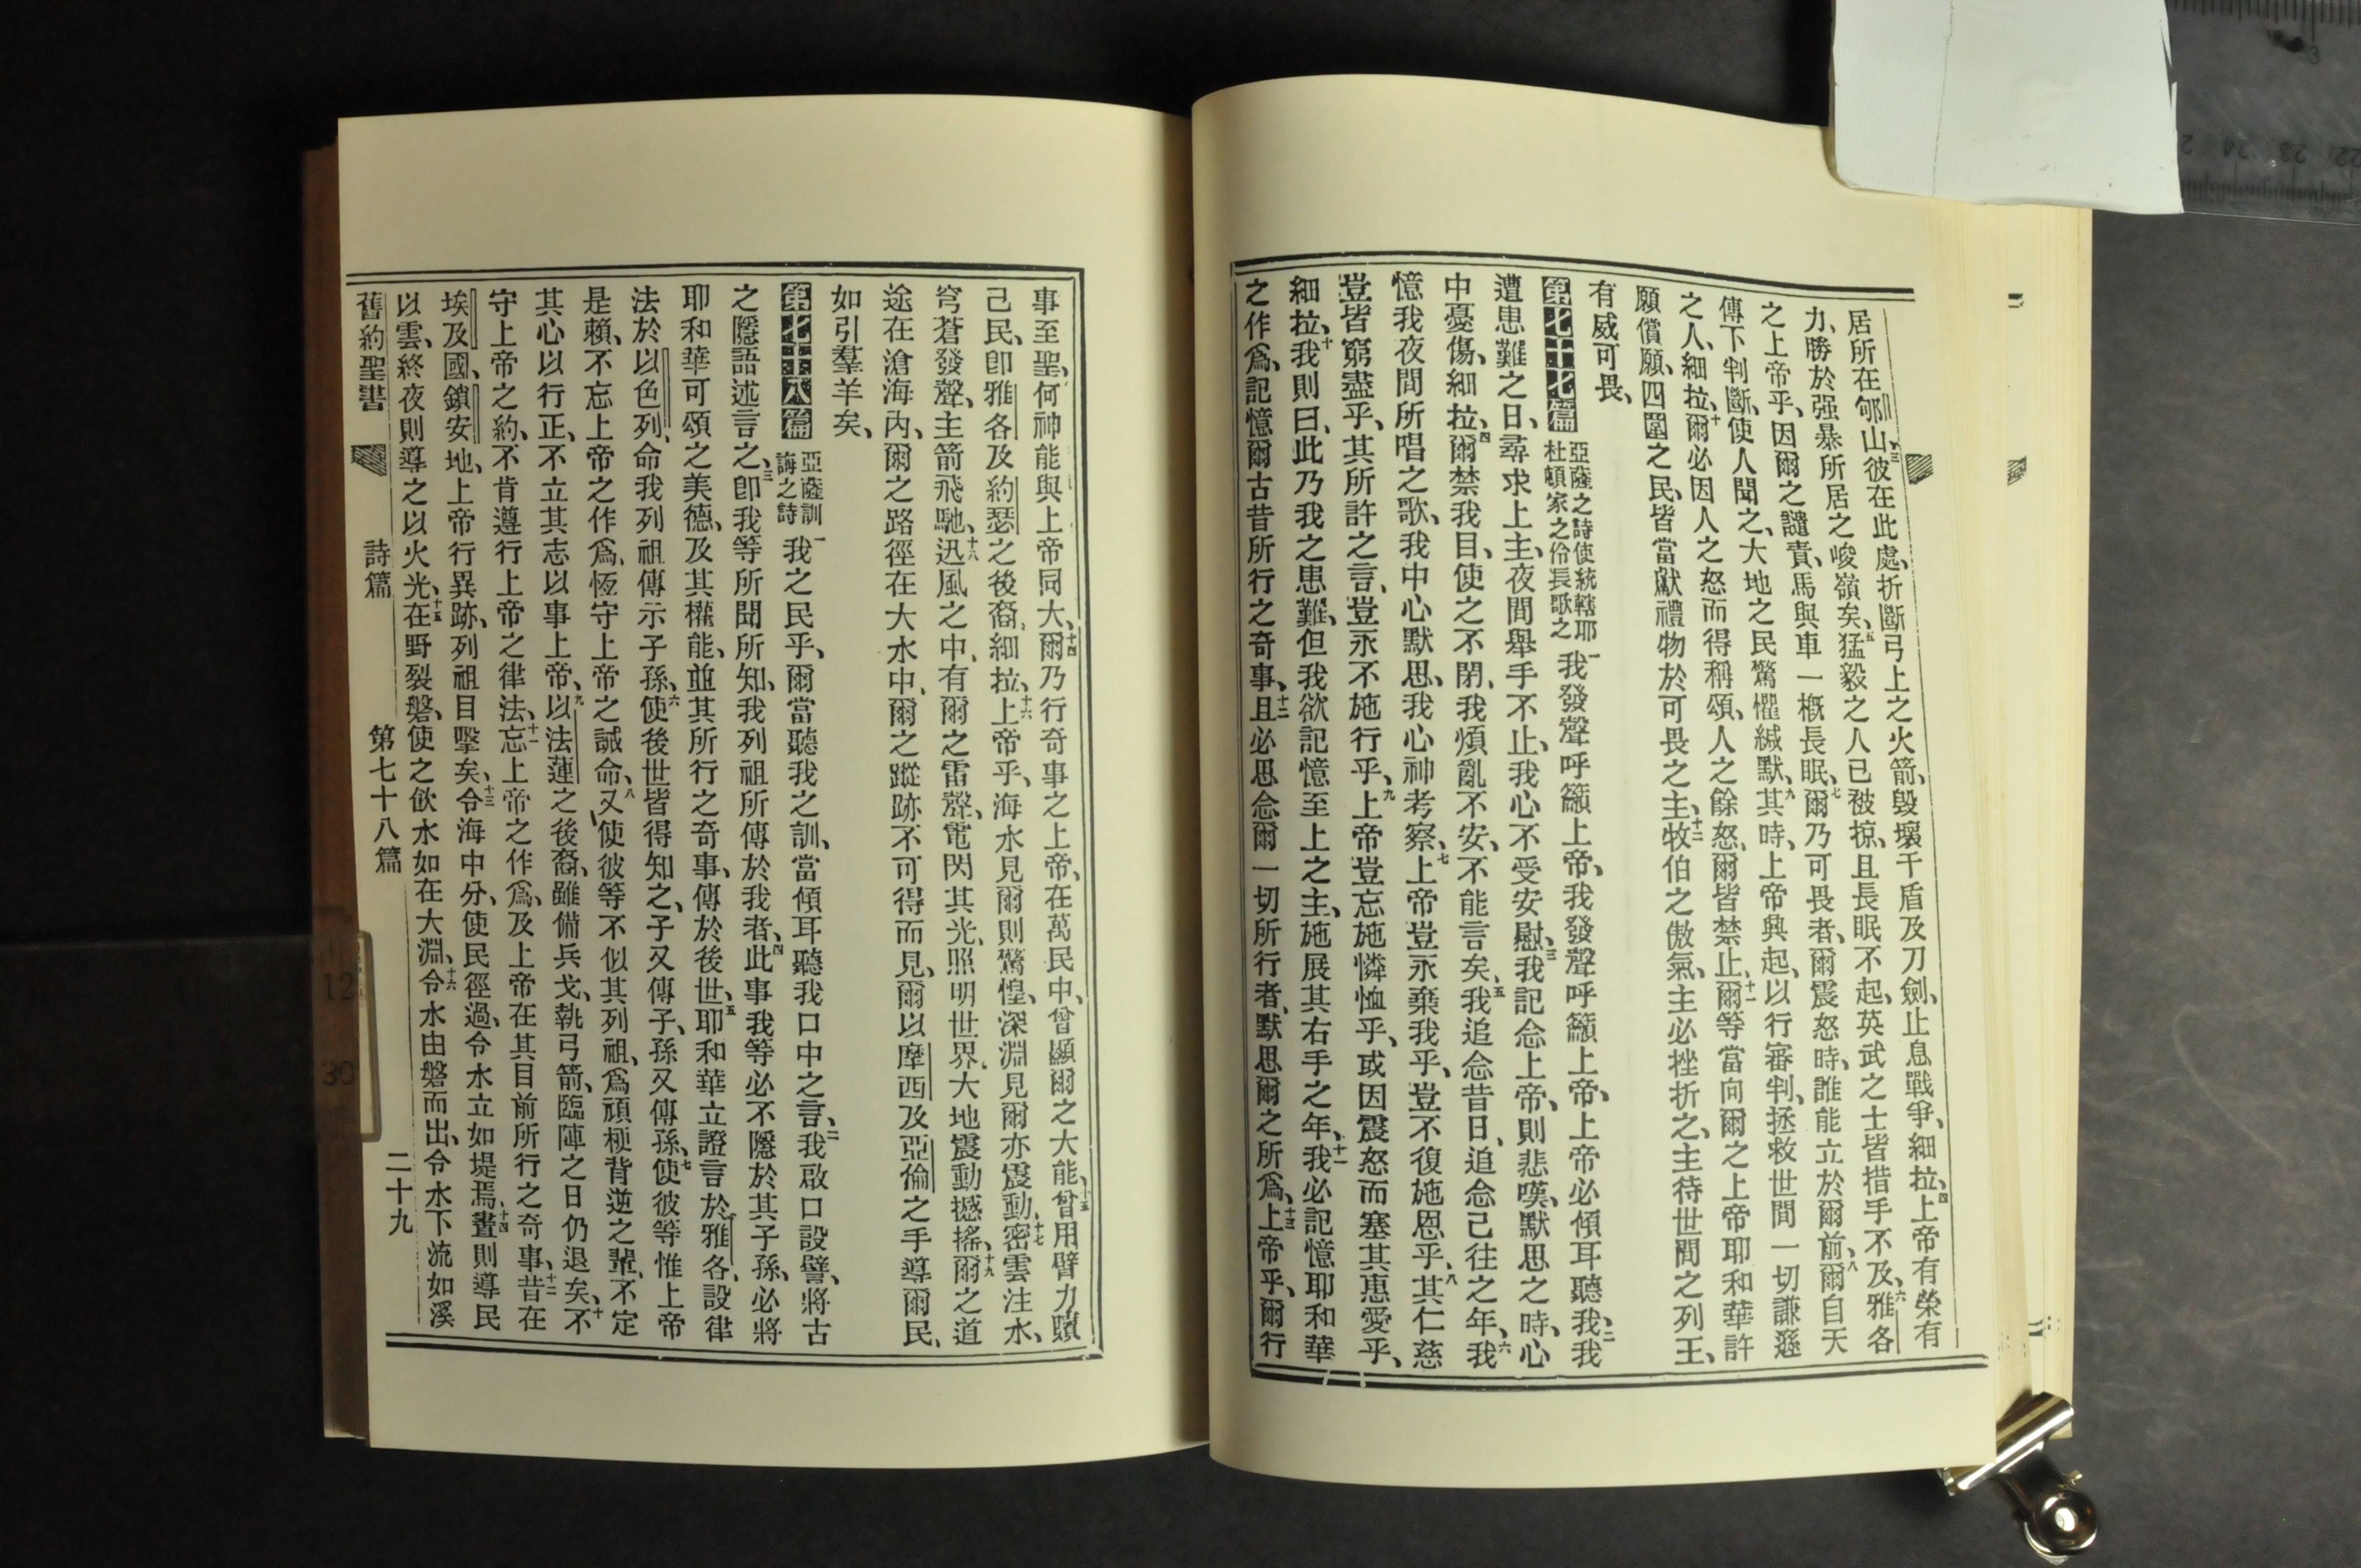 居所在郇山、三彼在此處、折斷弓上之火箭、毀壞干盾及刀劍、止息戰爭、細拉、四上帝有榮有
力、勝於强暴所居之峻嶺矣、五猛毅之人已被掠、且長眠不起、英武之士皆措手不及、六雅各
之上帝乎、因爾之譴責、馬與車一槪長眠、七爾乃可畏者、爾震怒時、誰能立於爾前、八爾自天
傳下判斷、使人聞之、大地之民驚懼緘默、九其時、上帝興起、以行審判、拯救世間一切謙遜
之人、細拉、十爾必因人之怒而得稱頌、人之餘怒、爾皆禁止、十一爾等當向爾之上帝耶和華許
願償願、四圍之民、皆當獻禮物於可畏之主、十二牧伯之傲氣、主必挫折之、主待世間之列王、
有威可畏、
第七十七篇 亞薩之詩使統轄耶杜頓家之伶長歌之 一我發聲呼籲上帝、我發聲呼籲上帝、上帝必傾耳聽我、二我
遭患難之日、尋求上主、夜間舉手不止、我心不受安慰、三我記念上帝、則悲嘆、默思之時、心
中憂傷、細拉、四爾禁我目、使之不閉、我煩亂不安、不能言矣、五我追念昔日、追念已往之年、六我
憶我夜間所唱之歌、我中心默思、我心神考察、七上帝豈永棄我乎、豈不復施恩乎、八其仁慈
豈皆窮盡乎、其所許之言、豈永不施行乎、九上帝豈忘施憐恤乎、或因震怒而塞其惠愛乎、
細拉、十我則曰、此乃我之患難、但我欲記憶至上之主、施展其右手之年、十一我必記憶耶和華
之作爲、記憶爾古昔所行之奇事、十二且必思念爾一切所行者、默思爾之所爲、十三上帝乎、爾行
事至聖、何神能與上帝同大、十四爾乃行奇事之上帝、在萬民中、曾顯爾之大能、十五曾用臂力贖
己民、卽雅各及約瑟之後裔、細拉、十六上帝乎、海水見爾則驚惶、深淵見爾亦震動、十七密雲注水、
穹蒼發聲、主箭飛馳、十八迅風之中、有爾之雷聲、電閃其光、照明世界、大地震動撼搖、十九爾之道
途在滄海內、爾之路徑在大水中、爾之蹤跡不可得而見、爾以摩西及亞倫之手導爾民、
如引羣羊矣、
第七十八篇 亞薩訓誨之詩 一我之民乎、爾當聽我之訓、當傾耳聽我口中之言、二我啟口設譬、將古
之隱語述言之、三卽我等所聞所知、我列祖所傳於我者、四此事我等必不隱於其子孫、必將
耶和華可頌之美德、及其權能、並其所行之奇事、傳於後世、五耶和華立證言於雅各、設律
法於以色列、命我列祖傳示子孫、六使後世皆得知之、子又傳子、孫又傳孫、七使彼等惟上帝
是賴、不忘上帝之作爲、恆守上帝之誡命、八又使彼等不似其列祖、爲頑梗背逆之輩、不定
其心以行正、不立其志以事上帝、九以法蓮之後裔、雖備兵戈、執弓箭、臨陣之日仍退矣、十不
守上帝之約、不肯遵行上帝之律法、十一忘上帝之作爲、及上帝在其目前所行之奇事、十二昔在
埃及國、鎖安地、上帝行異跡、列祖目擊矣、十三令海中分、使民徑過、令水立如堤焉、十四晝則導民
以雲、終夜則導之以火光、十五在野裂磐、使之飮水如在大淵、十六令水由磐而出、令水下流如溪
舊約聖書 詩篇 第七十八篇 二十九